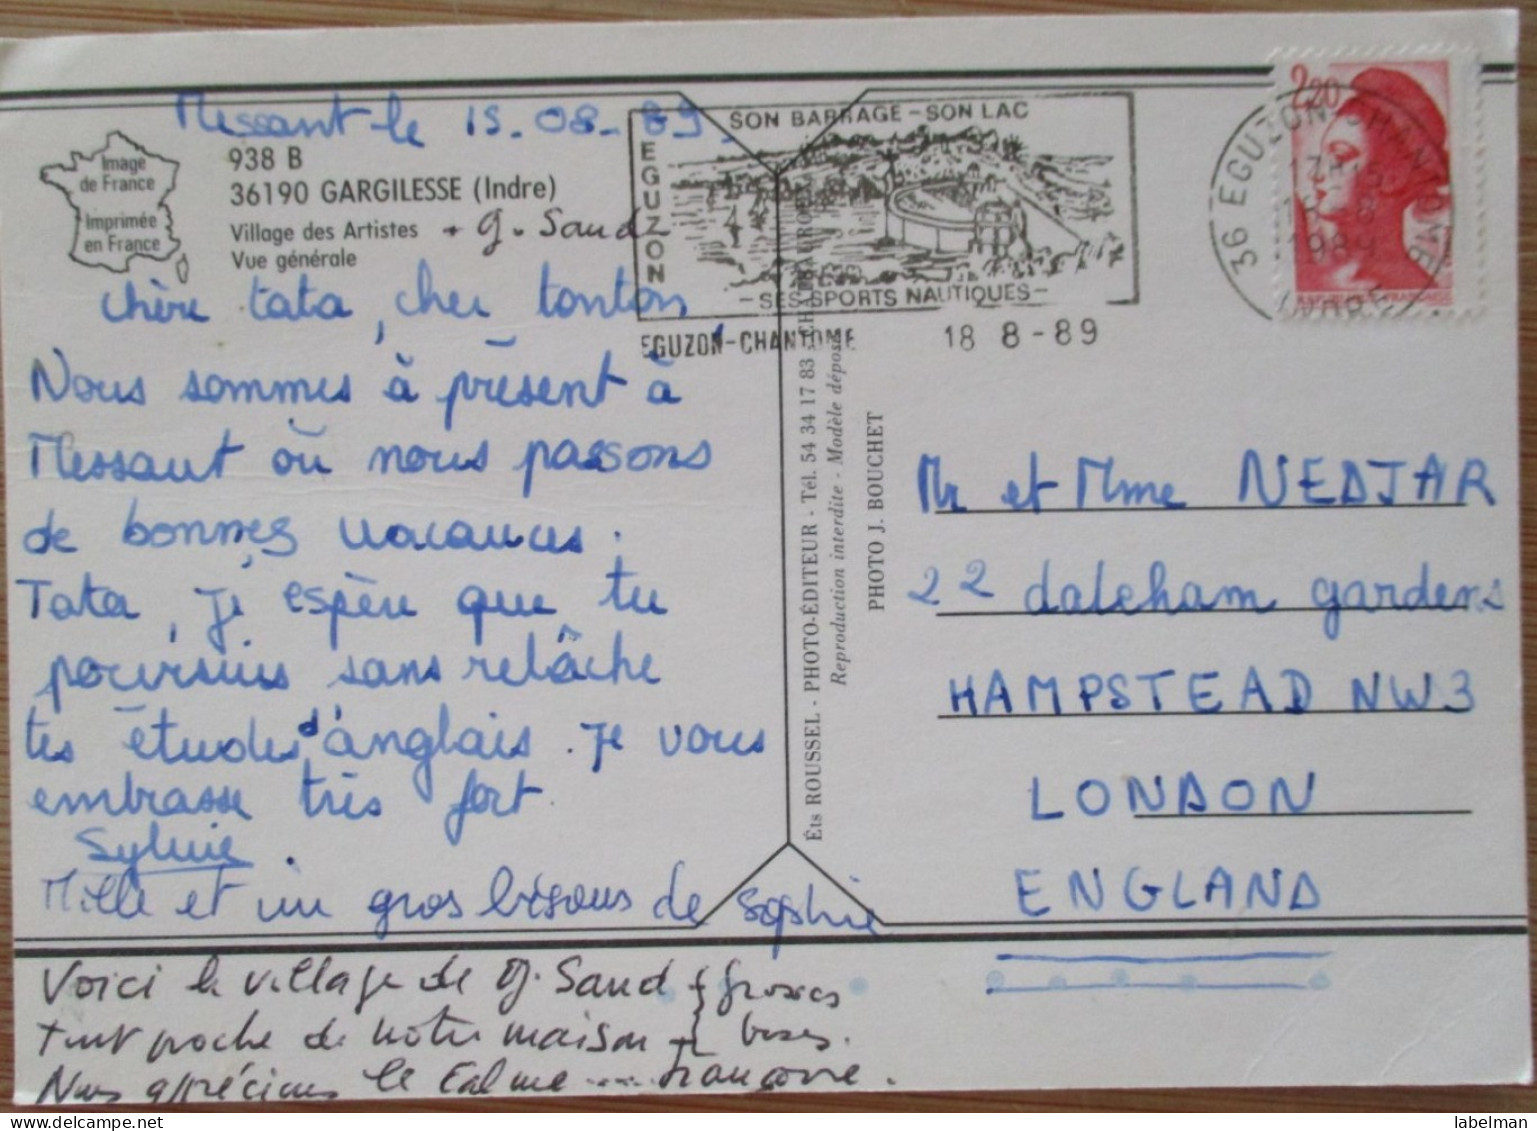 Messant le 15-08-89.
Image
de France
Imprimée
en France
938 B
36190 GARGILESSE (Indre)
Village des Artistes + G. Sand
Vue générale
chère tata, cher tonton,
Nous sommes à présent à
Messant où nous passons
de bonnes vacances.
Tata, j'espère que tu
poursuis sans relâche
tes études d'anglais. Je vous
embrasse très fort.
Sylvie.
Mille et un gros bisous de Sophie
Voici le village de G. Sand
tout proche de notre maison
Nous apprécions le calme ....
+ grosses
bises.
Françoise.
SON BARRAGE - SON LAC
EGUZON
- SES SPORTS NAUTIQUES -
EGUZON-CHANTOME 18 8-89
36 EGUZON-CHANTOME
18-8
1989
INDRE
2,20
Éts ROUSSEL - PHOTO-ÉDITEUR - Tél. 54 34 17 83 - CHATEAUROUX
Reproduction interdite - Modèle déposé
PHOTO J. BOUCHET
Mr et Mme NEDJAR
22 daleham gardens
HAMPSTEAD NW3
LONDON
ENGLAND
labelman